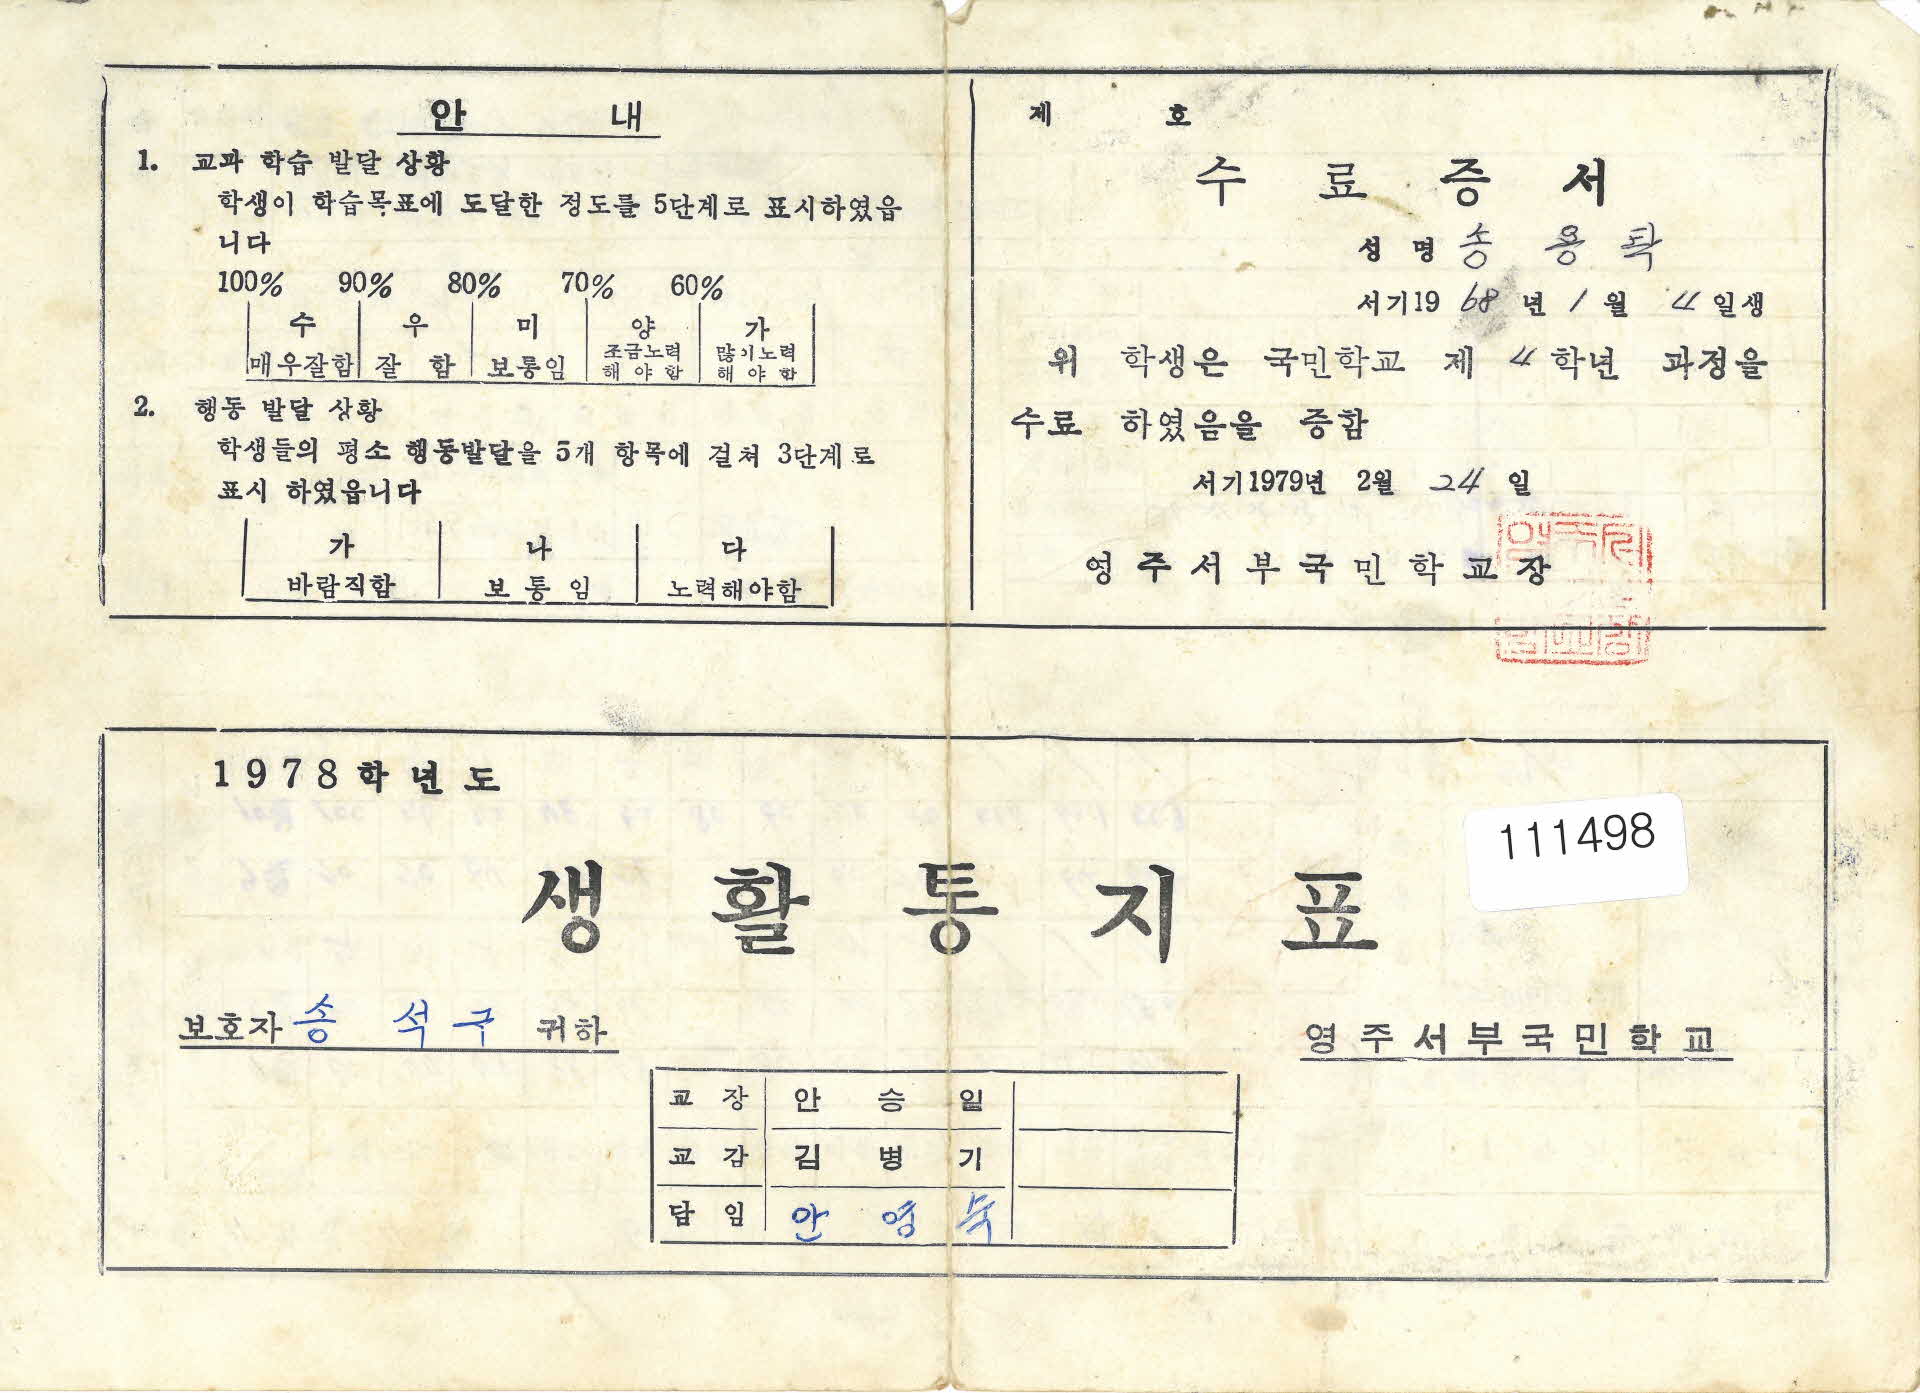 안 내
1. 교과 학습 발달 상황
학생이 학습목표에 도달한 정도를 5단계로 표시하였읍
니다
100% 90% 80% 70% 60%
수 우 미 양 가
매우잘함 잘 함 보통임 조금노력 해야함 많이노력 해야함
2. 행동 발달 상황
학생들의 평소 행동발달을 5개 항목에 걸쳐 3단계로
표시 하였읍니다
가 나 다
바람직함 보통임 노력해야함
제 호
수 료 증 서
성 명 송 용 탁
서기19 68 년 1 월 4 일생
위 학생은 국민학교 제 4 학년 과정을
수료 하였음을 증함
서기1979년 2월 24 일
영주서부국민학교장
1978학년도
111498
생 활 통 지 표
보호자 송 석 구 귀하
영주서부국민학교
교 장 안 승 일
교 감 김 병 기
담 임 안 영 숙